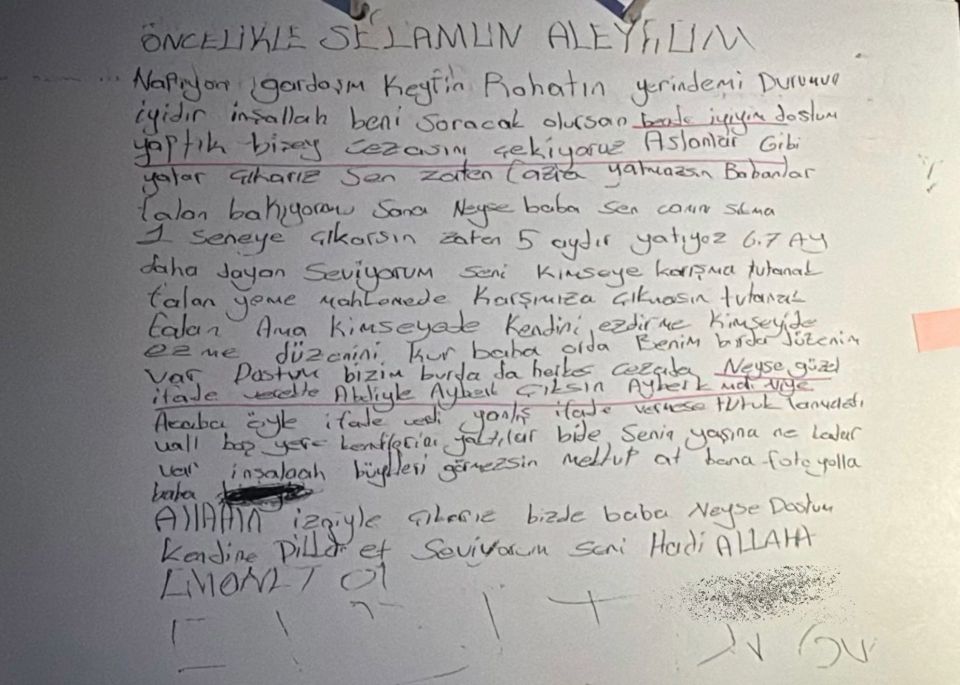 ÖNCELİKLE SELAMUN ALEYKÜM
Napıyon gardaşım Keyfin Rahatın yerindemi Durumun
iyidir inşallah beni soracak olursan bende iyiyim dostum
yaptık bizşey cezasını çekiyoruz Aslanlar Gibi
yatar çıkarız Sen zaten fazla yatmazsın Babanlar
falan bakıyorou Sana Neyse baba sen canın sıkma
1 seneye çıkarsın zaten 5 aydır yatıyoz 6.7 Ay
daha dayan Seviyorum seni kimseye karışma tutanak
falan yeme mahkemede karşımıza çıkmasın tutanak
falan Ama kimseyede kendini ezdirme kimseyide
ezme düzenini kur baba orda Benim burda düzenim
var Dostum bizim burda da herkes cezada Neyse güzel
ifade verekte Abdiyle Ayberk Çıksın Ayberk niye
Acaba öyle ifade verdi yanlış ifade vermese tutuk
vall boş yere kendilerini yaktılar bide Senin yaşına ne kadar
var inşalaah büyükleri görmezsin mektup at bana foto yolla
baba
ALLAHIN izniyle çıkarız bizde baba Neyse Dostum
kendine Dikkat et Seviyorum seni Hadi ALLAHA
EMANET Ol